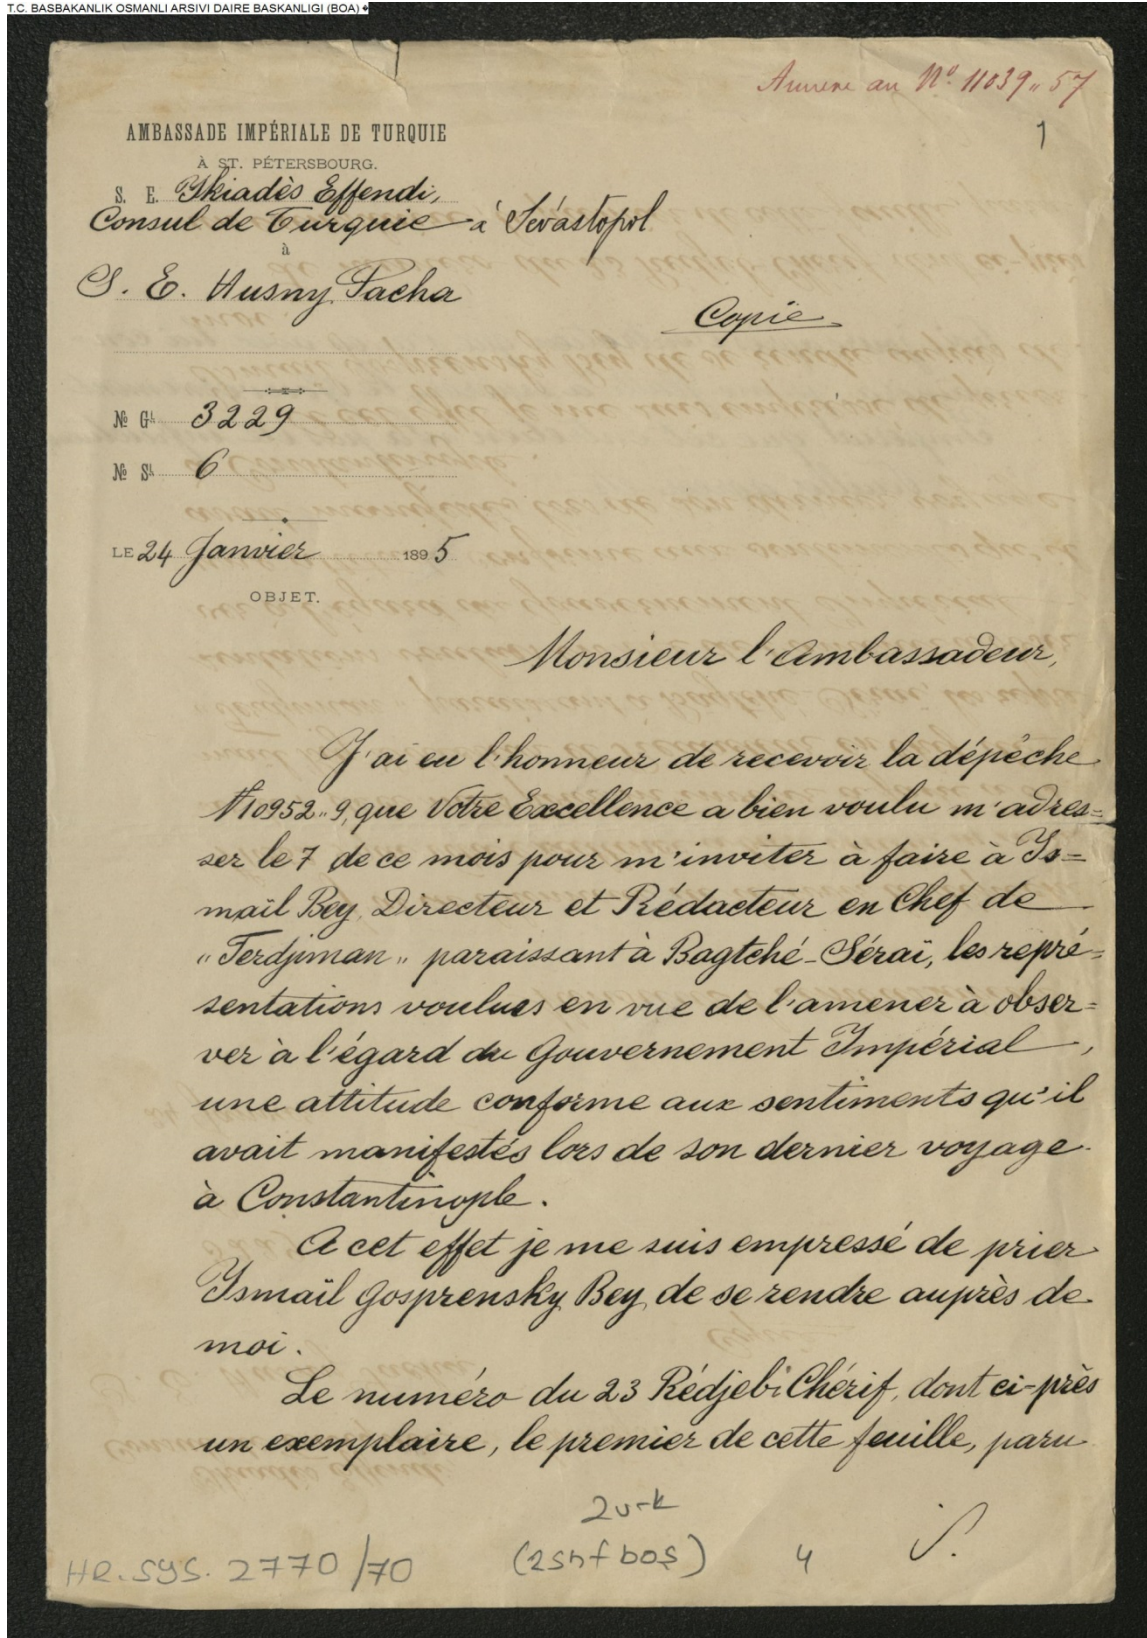 T.C. BASBAKANLIK OSMANLI ARSIVI DAIRE BASKANLIGI (BOA)
Annexe au Nº 11039 " 57
1
AMBASSADE IMPÉRIALE DE TURQUIE
À ST. PÉTERSBOURG.
S. E. Skiadès Effendi,
Consul de Turquie à Sévastopol
à
S. E. Husny Pacha
Copie
№ Gl. 3229
№ Sl. 6
LE 24 Janvier 1895
OBJET.
Monsieur l'Ambassadeur,
J'ai eu l'honneur de recevoir la dépêche
№10952 " 9, que Votre Excellence a bien voulu m'adres=
ser le 7 de ce mois pour m'inviter à faire à Is=
maïl Bey, Directeur et Rédacteur en Chef de
"Terdjiman" paraissant à Bagtché-Séraï, les repré=
sentations voulues en vue de l'amener à obser=
ver à l'égard du Gouvernement Impérial,
une attitude conforme aux sentiments qu'il
avait manifestés lors de son dernier voyage
à Constantinople.
A cet effet je me suis empressé de prier
Ismaïl Gosprensky Bey de se rendre auprès de
moi.
Le numéro du 23 Rédjebi Chérif, dont ci-près
un exemplaire, le premier de cette feuille, paru
2vrk
(2shf boş)
4
S.
HR.SYS. 2770/70